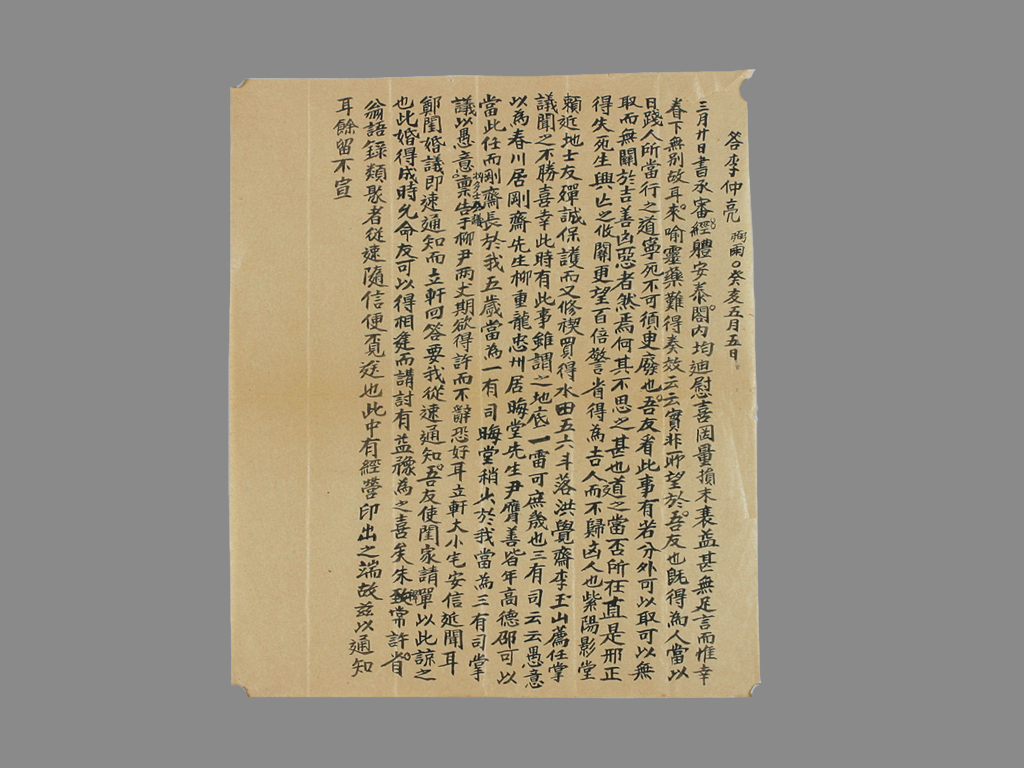 答李仲亮 炳爾○癸亥五月五日
三月廿日書承審經體安泰閤內均迪慰喜罔量損末衰益甚無足言而惟幸
眷下無別故耳來喻靈藥難得奏效云云實非所望於吾友也旣得為人當以
日踐人所當行之道寧死不可須臾廢也吾友看此事有若分外可以取可以無
取而無關於吉善凶惡者然焉何其不思之甚也道之當否所在直是邪正
得失死生興亡之攸關更望百倍警省得為吉人而不歸凶人也紫陽影堂
賴近地士友殫誠保護而又修禊買得水田五六斗落洪覺齋李玉山薦任掌
議聞之不勝喜幸此時有此事雖謂之地底一雷可庶幾也三有司云云愚意
以為春川居剛齋先生柳重龍忠州居晦堂先生尹膺善皆年高德邵可以
當此任而剛齋長於我五歲當為一有司晦堂稍少於我當為三有司掌
議以愚意稟告于柳尹兩丈期欲得許而不辭恐好耳立軒大小宅安信近聞耳
鄭閨婚議即速通知而立軒回答要我從速通知吾友使閨家請單以此諒之
也此婚得成時允命友可以得相逢而講討有益豫為之喜矣朱常許省
翁語錄類聚者從速隨信便覓送也此中有經營印出之端故玆以通知
耳餘留不宣